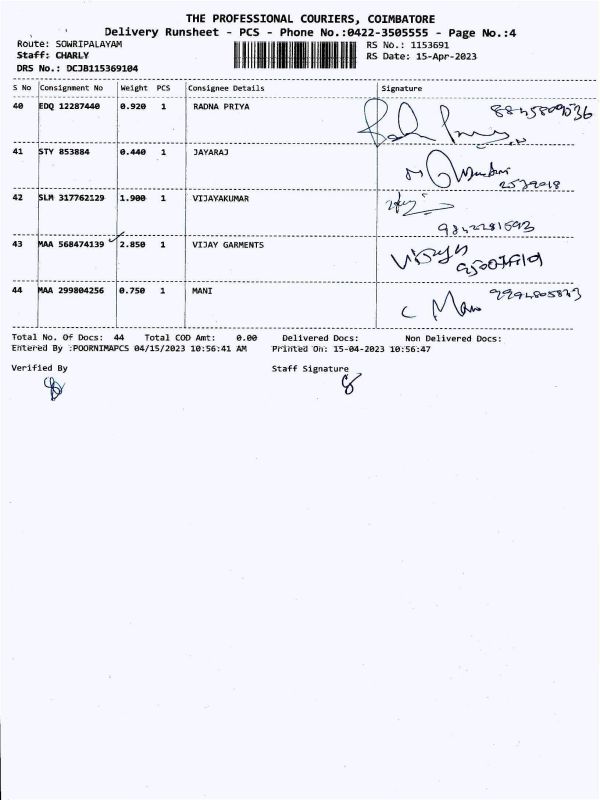 THE PROFESSIONAL COURIERS, COIMBATORE
Delivery Runsheet - PCS - Phone No.:0422-3505555 - Page No.:4
Route: SOWRIPALAYAM RS No.: 1153691
Staff: CHARLY RS Date: 15-Apr-2023
DRS No.: DCJB115369104
S No Consignment No Weight PCS Consignee Details Signature
40 EDQ 12287440 0.920 1 RADNA PRIYA
41 STY 853884 0.440 1 JAYARAJ
42 SLM 317762129 1.900 1 VIJAYAKUMAR
9842281593
43 MAA 568474139 2.850 1 VIJAY GARMENTS
44 MAA 299804256 0.750 1 MANI
Total No. Of Docs: 44 Total COD Amt: 0.00 Delivered Docs: Non Delivered Docs:
Entered By :POORNIMAPCS 04/15/2023 10:56:41 AM Printed On: 15-04-2023 10:56:47
Verified By Staff Signature